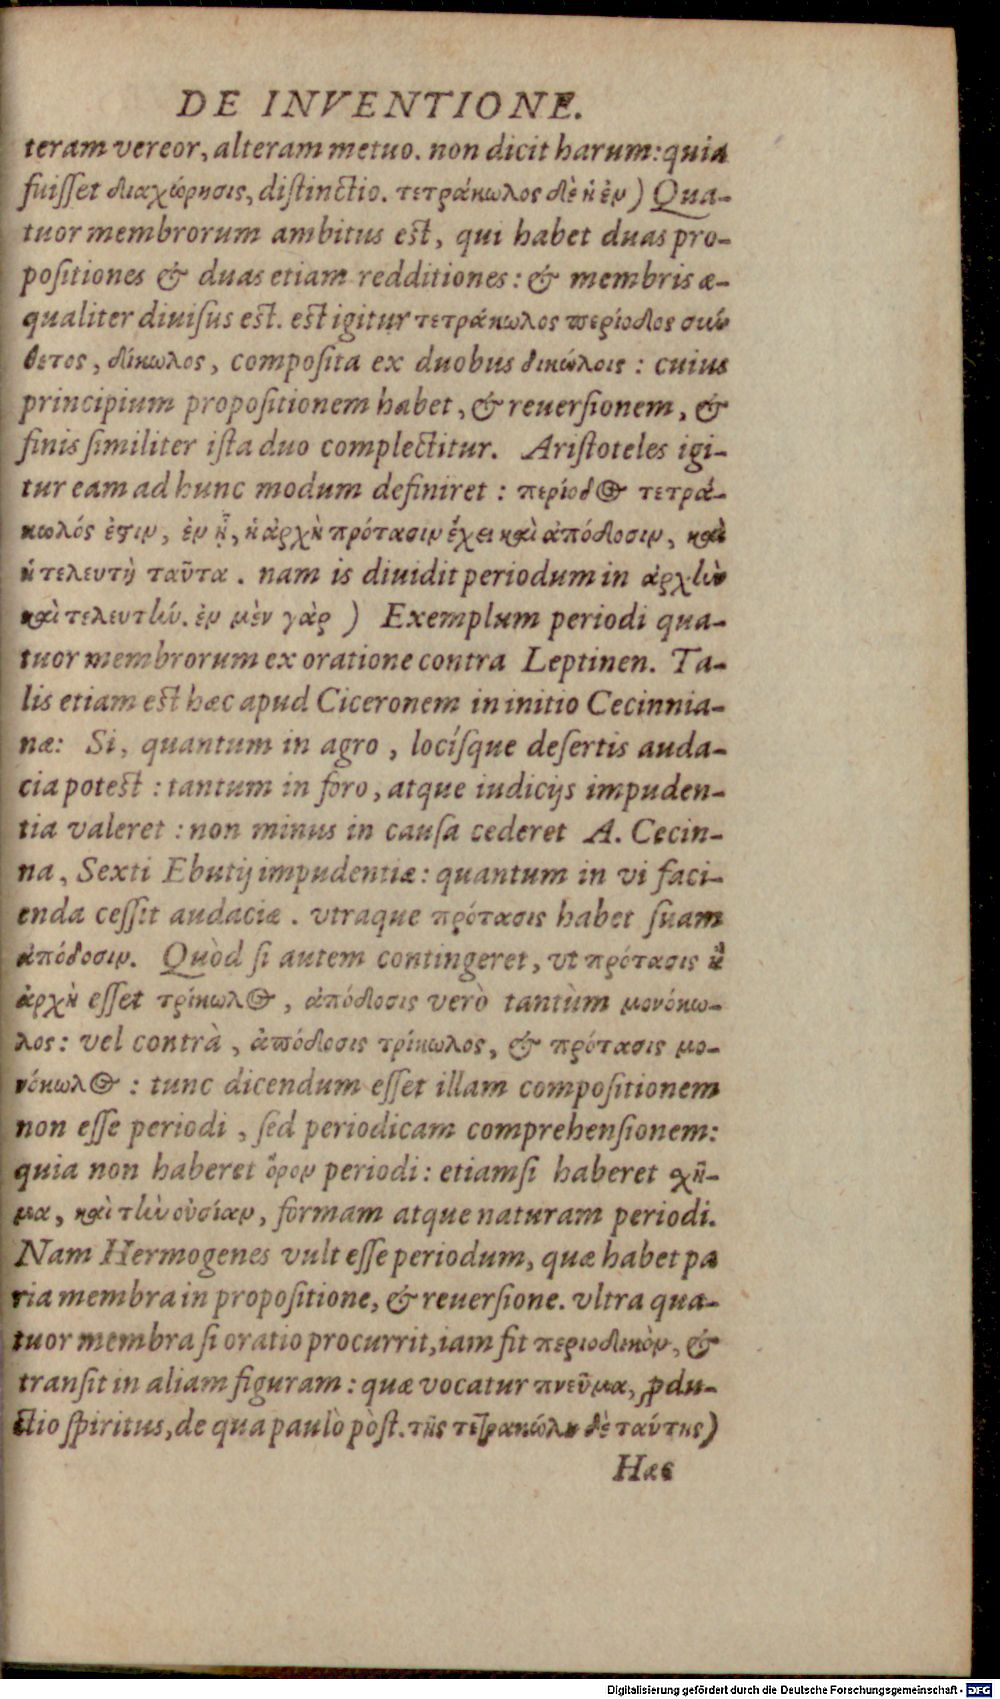 DE INVENTIONE.
teram vereor, alteram metuo. non dicit harum: quia
fuisset διαχώρησις, distinctio. τετράκωλος δὲ ἡ ἐν) Qua-
tuor membrorum ambitus est, qui habet duas pro-
positiones & duas etiam redditiones: & membris æ-
qualiter diuisus est. est igitur τετράκωλος περίοδος σύν
θετος, δίκωλος, composita ex duobus δικώλοις: cuius
principium propositionem habet, & reuersionem, &
finis similiter ista duo complectitur. Aristoteles igi-
tur eam ad hunc modum definiret: περίοδος τετρά-
κωλός ἐστιν, ἐν ᾗ, ἡ ἀρχὴ πρότασιν ἔχει καὶ ἀπόδοσιν, καὶ
ἡ τελευτὴ ταῦτα. nam is diuidit periodum in ἀρχὴν
καὶ τελευτήν. ἐν μὲν γὰρ) Exemplum periodi qua-
tuor membrorum ex oratione contra Leptinen. Ta-
lis etiam est hæc apud Ciceronem in initio Cecinnia-
næ: Si, quantum in agro, locísque desertis auda-
cia potest: tantum in foro, atque iudicijs impuden-
tia valeret: non minus in causa cederet A. Cecin-
na, Sexti Ebutij impudentiæ: quantum in vi faci-
enda cessit audaciæ. vtraque πρότασις habet suam
ἀπόδοσιν. Quòd si autem contingeret, vt πρότασις ἢ
ἀρχὴ esset τρίκωλος, ἀπόδοσις verò tantùm μονόκω-
λος: vel contrà, ἀπόδοσις τρίκωλος, & πρότασις μο-
νόκωλος: tunc dicendum esset illam compositionem
non esse periodi, sed periodicam comprehensionem:
quia non haberet ὅρον periodi: etiamsi haberet σχῆ-
μα, καὶ τὴν οὐσίαν, formam atque naturam periodi.
Nam Hermogenes vult esse periodum, quæ habet pa
ria membra in propositione, & reuersione. vltra qua-
tuor membra si oratio procurrit, iam fit περιοδικὸν, &
transit in aliam figuram: quæ vocatur πνεῦμα, ꝓdu-
ctio spiritus, de qua paulò pòst. τῆς τετρακώλου δὲ ταύτης)
Hæc
Digitalisierung gefördert durch die Deutsche Forschungsgemeinschaft - DFG